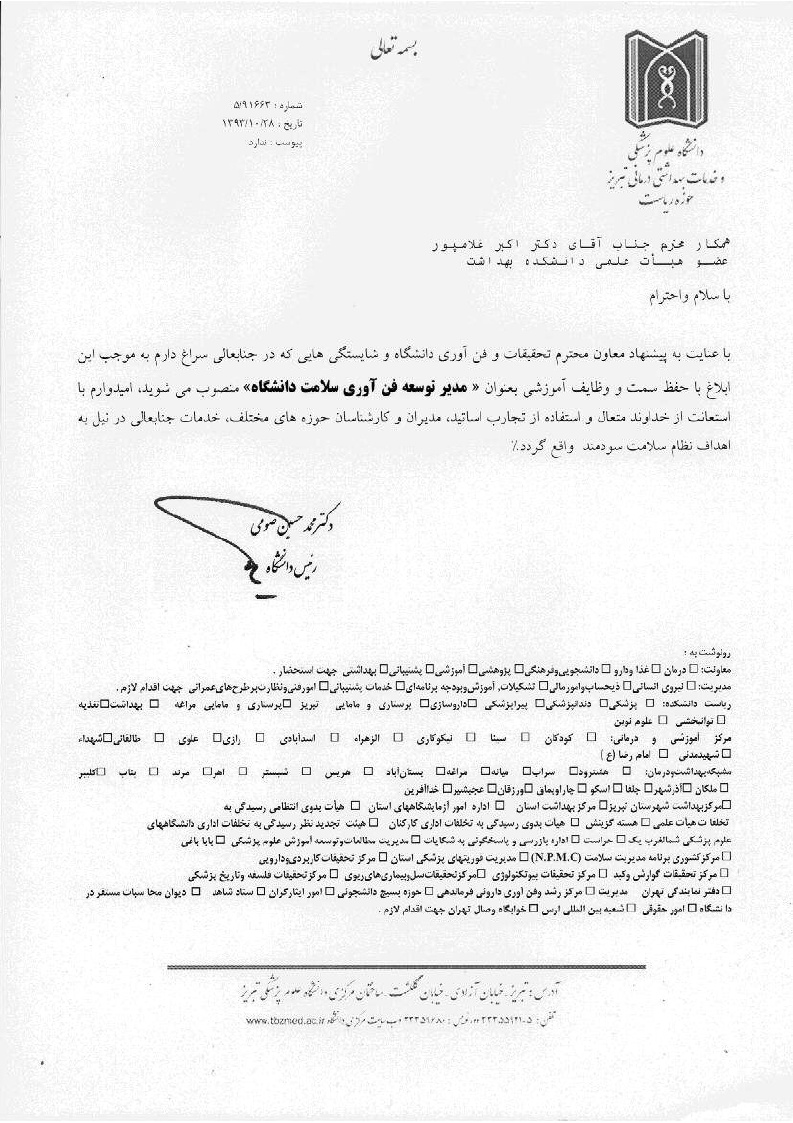 بسمه تعالی
دانشگاه علوم پزشکی
و خدمات بهداشتی درمانی تبریز
حوزه ریاست
شماره : ۵/۹۱۶۶۳
تاریخ : ۱۳۹۳/۱۰/۲۸
پیوست : ندارد
همکار محترم جناب آقای دکتر اکبر غلامپور
عضو هیأت علمی دانشکده بهداشت
با سلام واحترام
با عنایت به پیشنهاد معاون محترم تحقیقات و فن آوری دانشگاه و شایستگی هایی که در جنابعالی سراغ دارم به موجب این
ابلاغ با حفظ سمت و وظایف آموزشی بعنوان « مدیر توسعه فن آوری سلامت دانشگاه» منصوب می شوید، امیدوارم با
استعانت از خداوند متعال و استفاده از تجارب اساتید، مدیران و کارشناسان حوزه های مختلف، خدمات جنابعالی در نیل به
اهداف نظام سلامت سودمند واقع گردد.٪
دکتر محمد حسین صومی
رئیس دانشگاه
رونوشت به :
معاونت: □ درمان □ غذا ودارو □ دانشجویی‌وفرهنگی□ پژوهشی□ آموزشی□ پشتیبانی□ بهداشتی جهت استحضار .
مدیریت: □ نیروی انسانی□ ذیحساب‌وامورمالی□ تشکیلات, آموزش‌وبودجه برنامه‌ای□ خدمات پشتیبانی□ امورفنی‌ونظارت‌برطرح‌های‌عمرانی جهت اقدام لازم .
ریاست دانشکده: □ پزشکی□ دندانپزشکی□ پیراپزشکی □داروسازی□ پرستاری و مامایی تبریز □پرستاری و مامایی مراغه □ بهداشت□تغذیه
□ توانبخشی □ علوم نوین
مرکز آموزشی و درمانی: □ کودکان □ سینا □ نیکوکاری □ الزهراء □ اسدآبادی □ رازی□ علوی □ طالقانی□شهداء
□شهیدمدنی □ امام رضا (ع)
شبکه‌بهداشت‌ودرمان: □ هشترود□ سراب□ میانه□ مراغه□ بستان‌آباد □ هریس □ شبستر □ اهر□ مرند □ بناب □کلیبر
□ ملکان □آذرشهر□ جلفا □ اسکو □ چاراویماق □ورزقان□ عجبشیر□ خداآفرین
□مرکزبهداشت شهرستان تبریز□ مرکز بهداشت استان □ اداره امور آزمایشگاههای استان □ هیأت بدوی انتظامی رسیدگی به
تخلفات هیأت علمی □ هسته گزینش □ هیأت بدوی رسیدگی به تخلفات اداری کارکنان □ هیئت تجدید نظر رسیدگی به تخلفات اداری دانشگاههای
علوم پزشکی شمالغرب یک □ حراست □ اداره بازرسی و پاسخگویی به شکایات □ مدیریت مطالعات‌وتوسعه آموزش علوم پزشکی □ بابا باغی
□ مرکز کشوری برنامه مدیریت سلامت (N.P.M.C)□ مدیریت فوریتهای پزشکی استان □ مرکز تحقیقات کاربردی‌ودارویی
□ مرکز تحقیقات گوارش وکبد □ مرکز تحقیقات بیوتکنولوژی □مرکزتحقیقات‌سل‌وبیماری‌های‌ریوی □ مرکزتحقیقات فلسفه وتاریخ پزشکی
□ دفتر نمایندگی تهران مدیریت □ مرکز رشد وفن آوری داروئی فرماندهی □ حوزه بسیج دانشجوئی □ امور ایثارگران □ ستاد شاهد □ دیوان محاسبات مستقر در
دانشگاه □ امور حقوقی □شعبه بین المللی ارس □ خوابگاه وصال تهران جهت اقدام لازم .
آدرس : تبریز . خیابان آزادی . خیابان گلگشت . ساختمان مرکزی دانشگاه علوم پزشکی تبریز
تلفن : ۵-۳۳۳۵۵۹۲۱ دورنویس : ۳۳۳۵۱۶۸۰ وب سایت مرکزی دانشگاه www.tbzmed.ac.ir